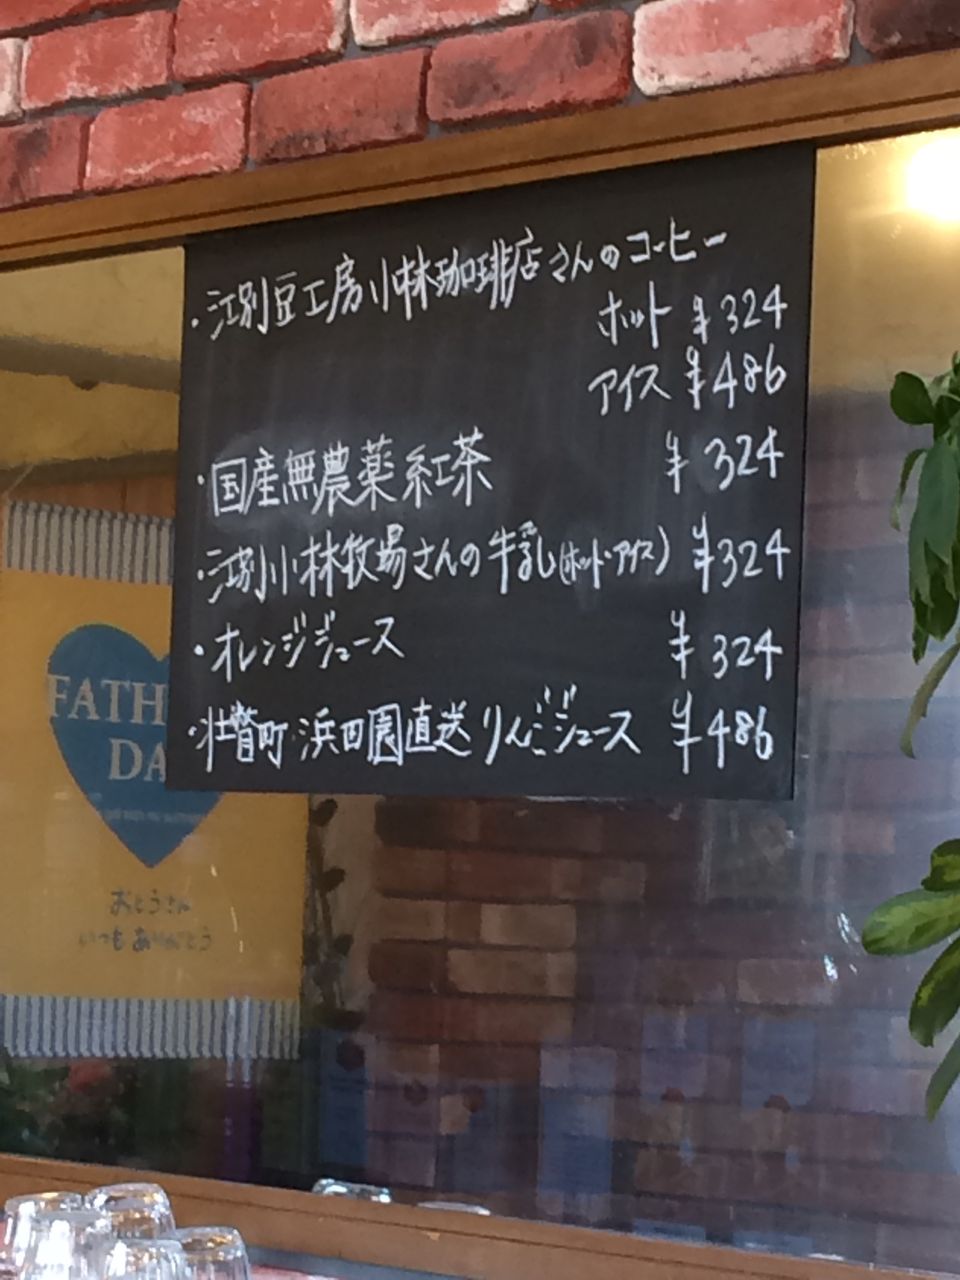 ・江別豆工房小林珈琲店さんのコーヒー
ホット ¥324
アイス ¥486
・国産無農薬紅茶 ¥324
・江別小林牧場さんの牛乳(ホット・アイス) ¥324
・オレンジジュース ¥324
・壮瞥町・浜田園直送りんごジュース ¥486
FATH
DA
おとうさん
いつもありがとう